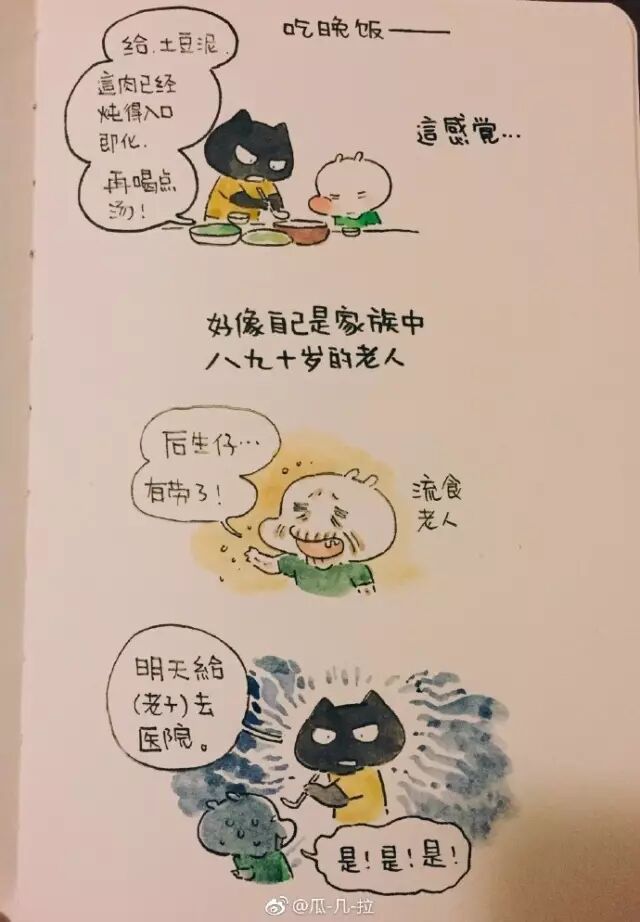 吃晚饭——
给.土豆泥.
這肉已经
炖得入口
即化.
再喝点
汤!
這感觉...
好像自己是家族中
八九十岁的老人
后生仔...
有劳了!
流食
老人
明天給
(老子)去
医院。
是!是!是!
@瓜-几-拉